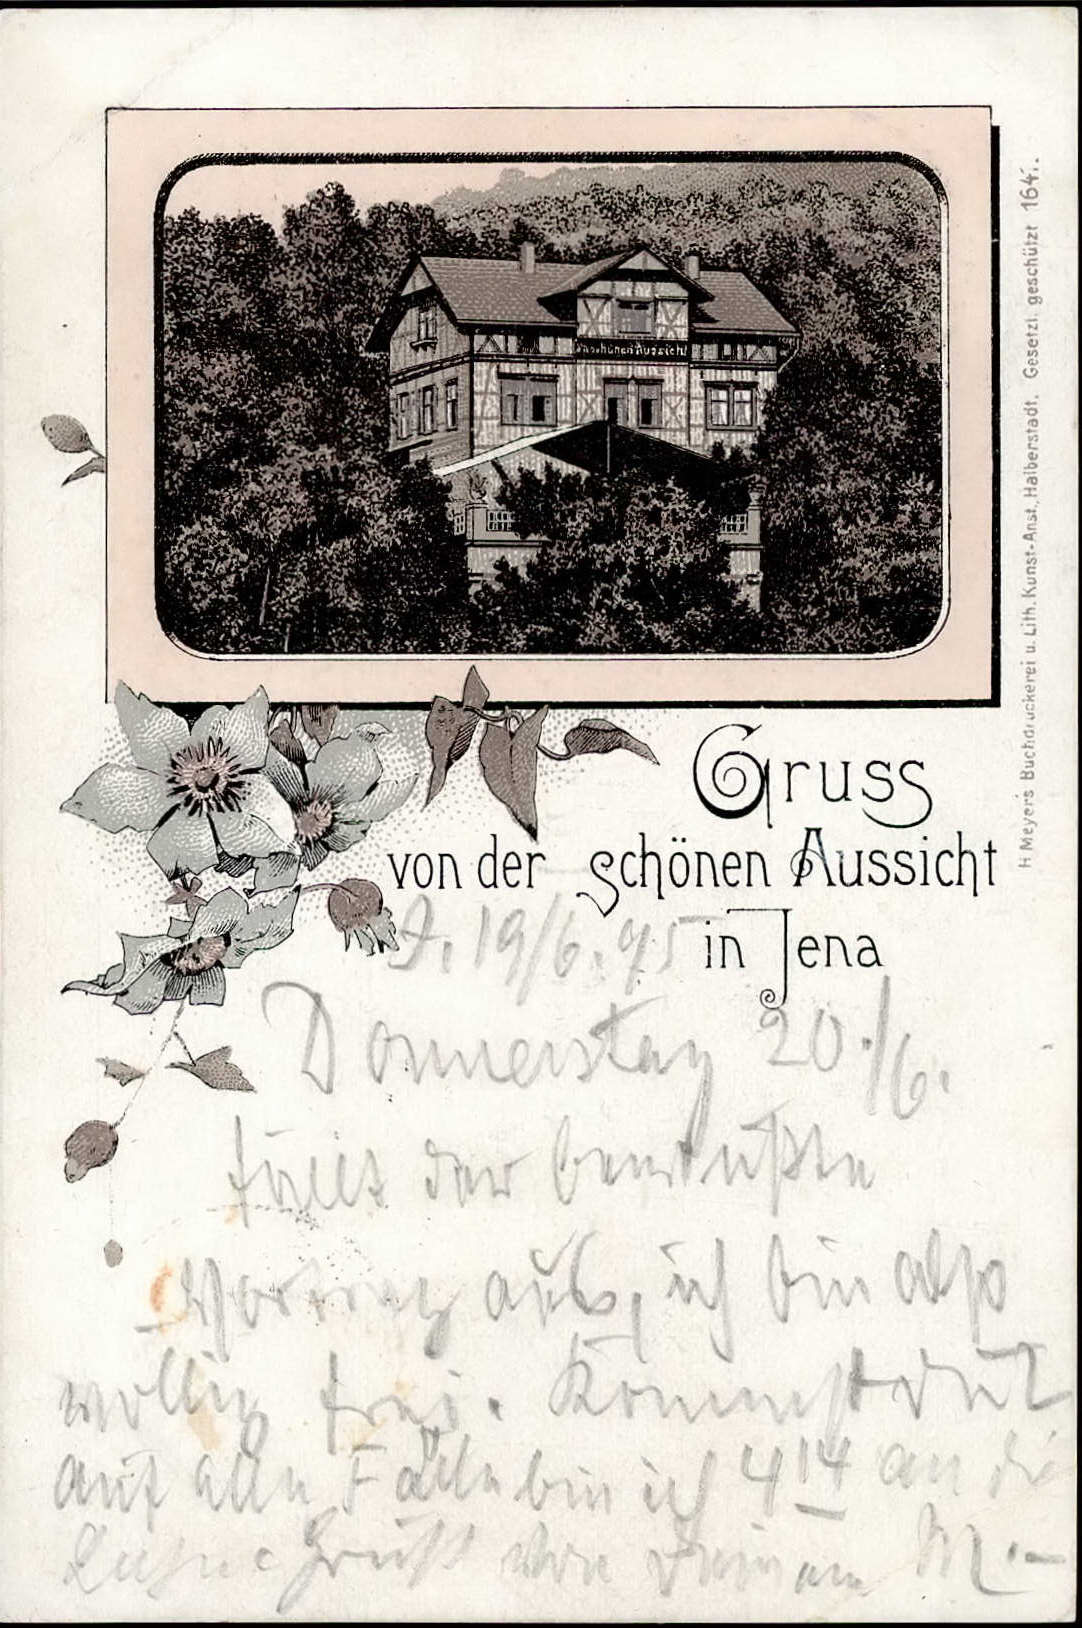 zur schönen Aussicht
H Meyer's Buchdruckerei u. Lith. Kunst-Anst., Halberstadt. Gesetzl. geschützt 164.
Gruss
von der schönen Aussicht
in Jena
J. 19/6. 95
Donnerstag 20./6.
fällt der bewußte
Vortrag aus, ich bin also
völlig frei. Kommst Du?
auf alle Fälle bin ich 4 14 an die
Gruß von Deinem M.